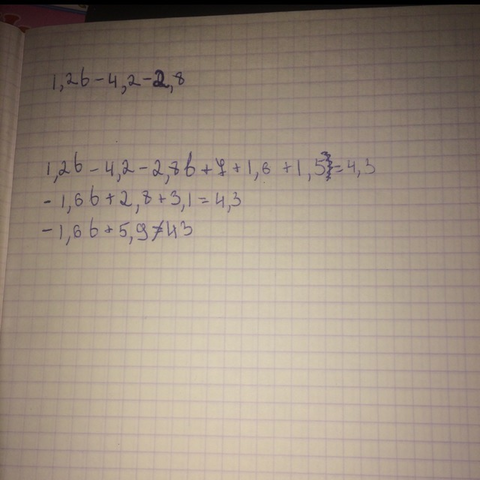 1,2b-4,2-2,8
1,2b-4,2-2,8b+7+1,6+1,5=4,3
-1,6b+2,8+3,1=4,3
-1,6b+5,9=43